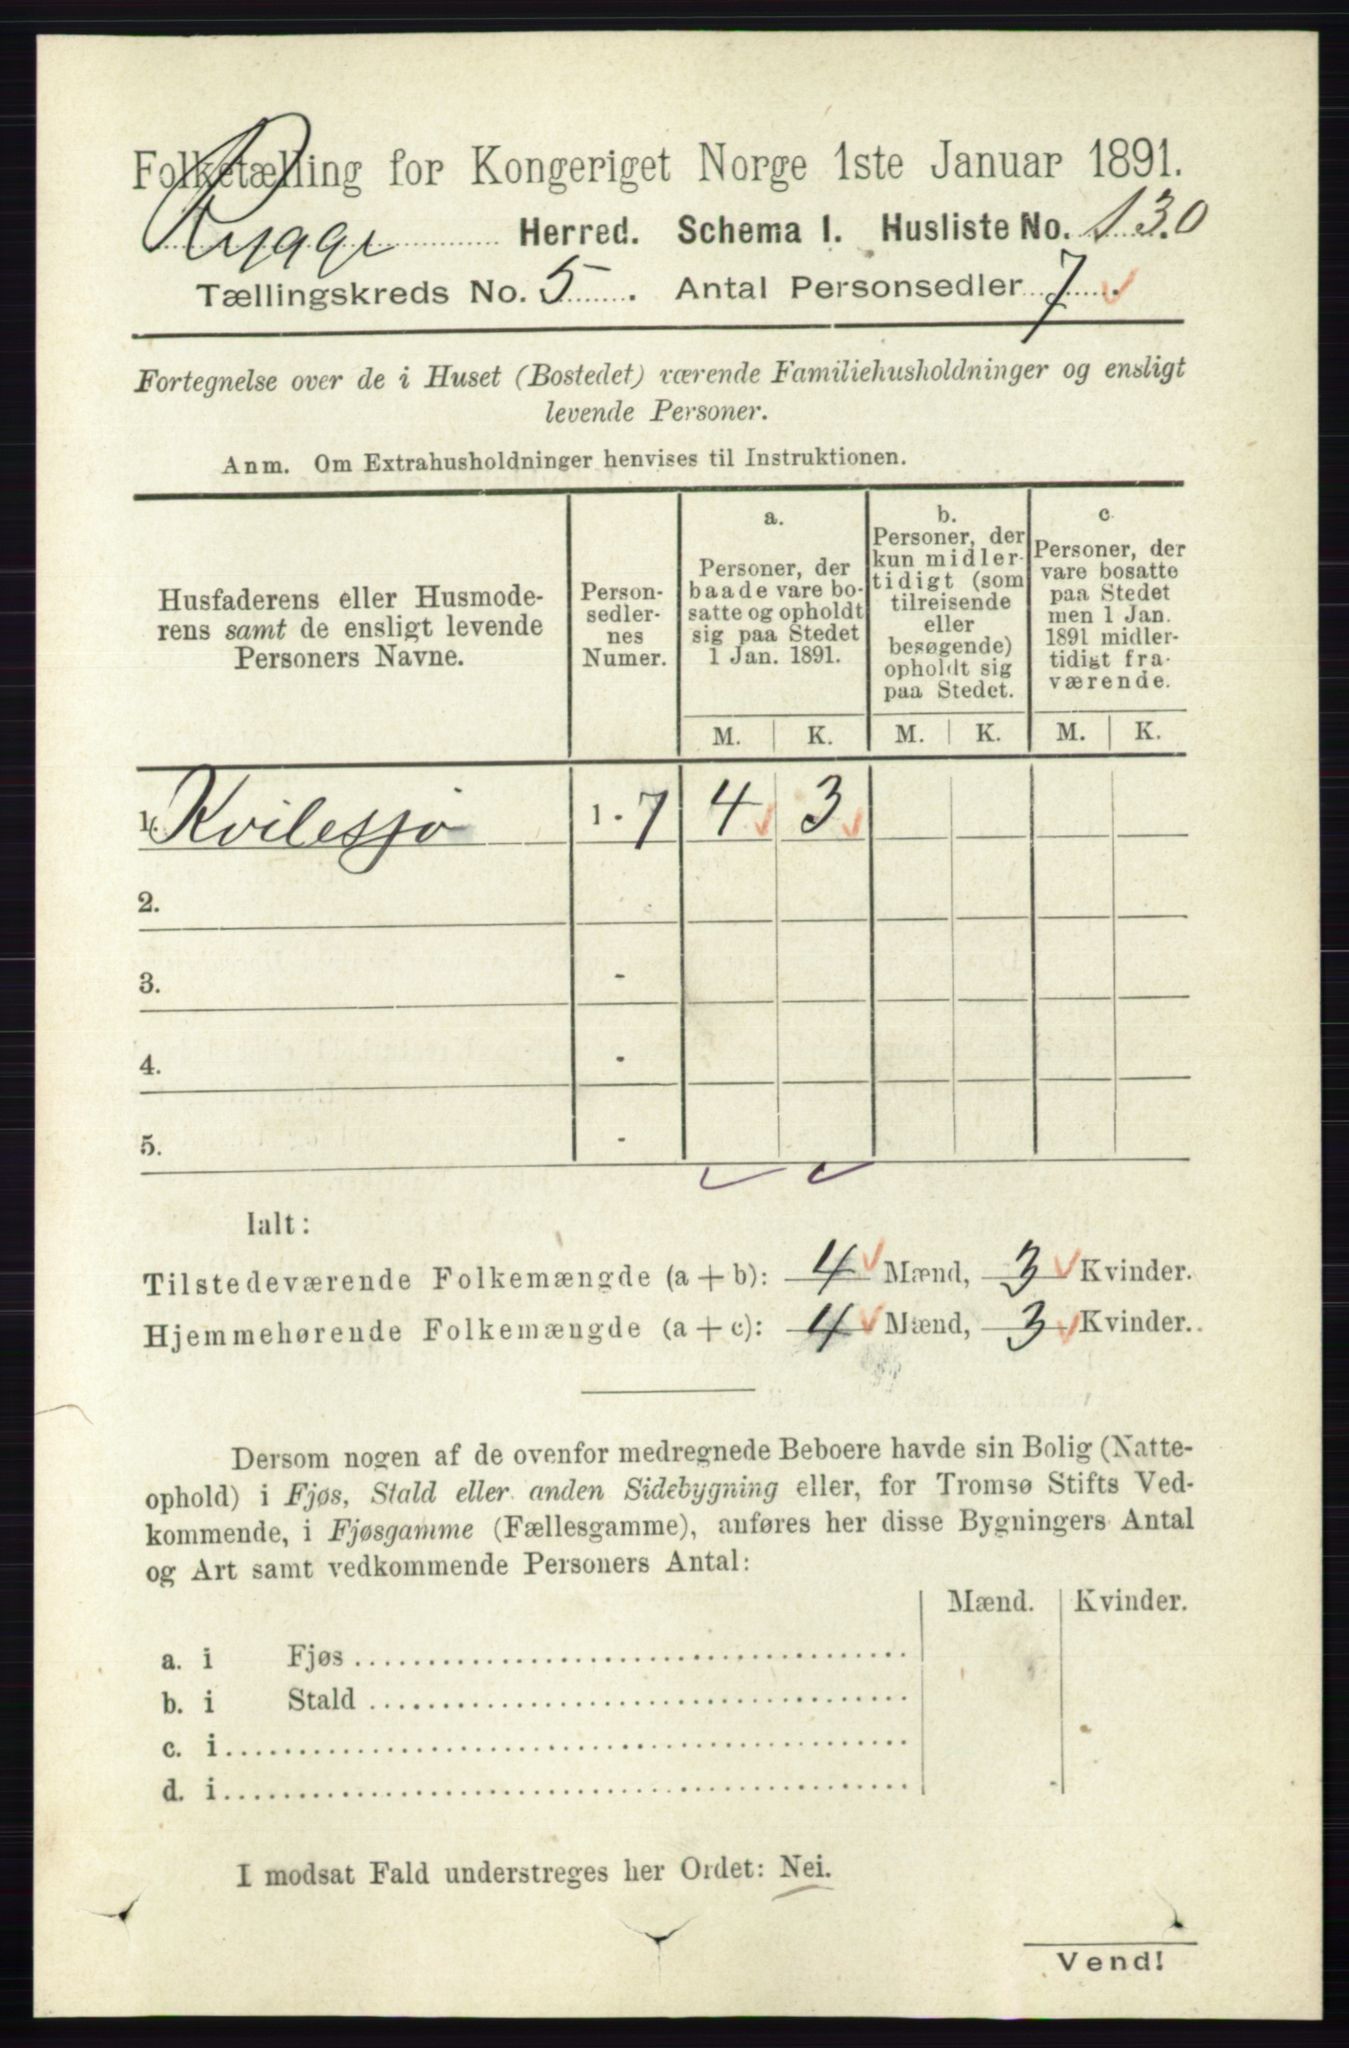 Folketælling for Kongeriget Norge 1ste Januar 1891.
Rygge Herred. Schema I. Husliste No. 130
Tællingskreds No. 5. Antal Personsedler 7.
Fortegnelse over de i Huset (Bostedet) værende Familiehusholdninger og ensligt
levende Personer.
Anm. Om Extrahusholdninger henvises til Instruktionen.
Husfaderens eller Husmode-
rens samt de ensligt levende
Personers Navne.
Person-
sedler-
nes
Numer.
a.
Personer, der
baade vare bo-
satte og opholdt
sig paa Stedet
1 Jan. 1891.
b.
Personer, der
kun midler-
tidigt (som
tilreisende
eller
besøgende)
opholdt sig
paa Stedet.
c.
Personer, der
vare bosatte
paa Stedet
men 1 Jan.
1891 midler-
tidigt fra-
værende.
M. K. M. K. M. K.
1. Kvilesjø 1 - 7 4 3
2.
3. -
4. -
5. -
Ialt:
Tilstedeværende Folkemængde (a + b): 4 Mænd, 3 Kvinder.
Hjemmehørende Folkemængde (a + c): 4 Mænd, 3 Kvinder.
Dersom nogen af de ovenfor medregnede Beboere havde sin Bolig (Natte-
ophold) i Fjøs, Stald eller anden Sidebygning eller, for Tromsø Stifts Ved-
kommende, i Fjøsgamme (Fællesgamme), anføres her disse Bygningers Antal
og Art samt vedkommende Personers Antal:
Mænd. Kvinder.
a. i Fjøs
b. i Stald
c. i
d. i
I modsat Fald understreges her Ordet: Nei.
Vend!